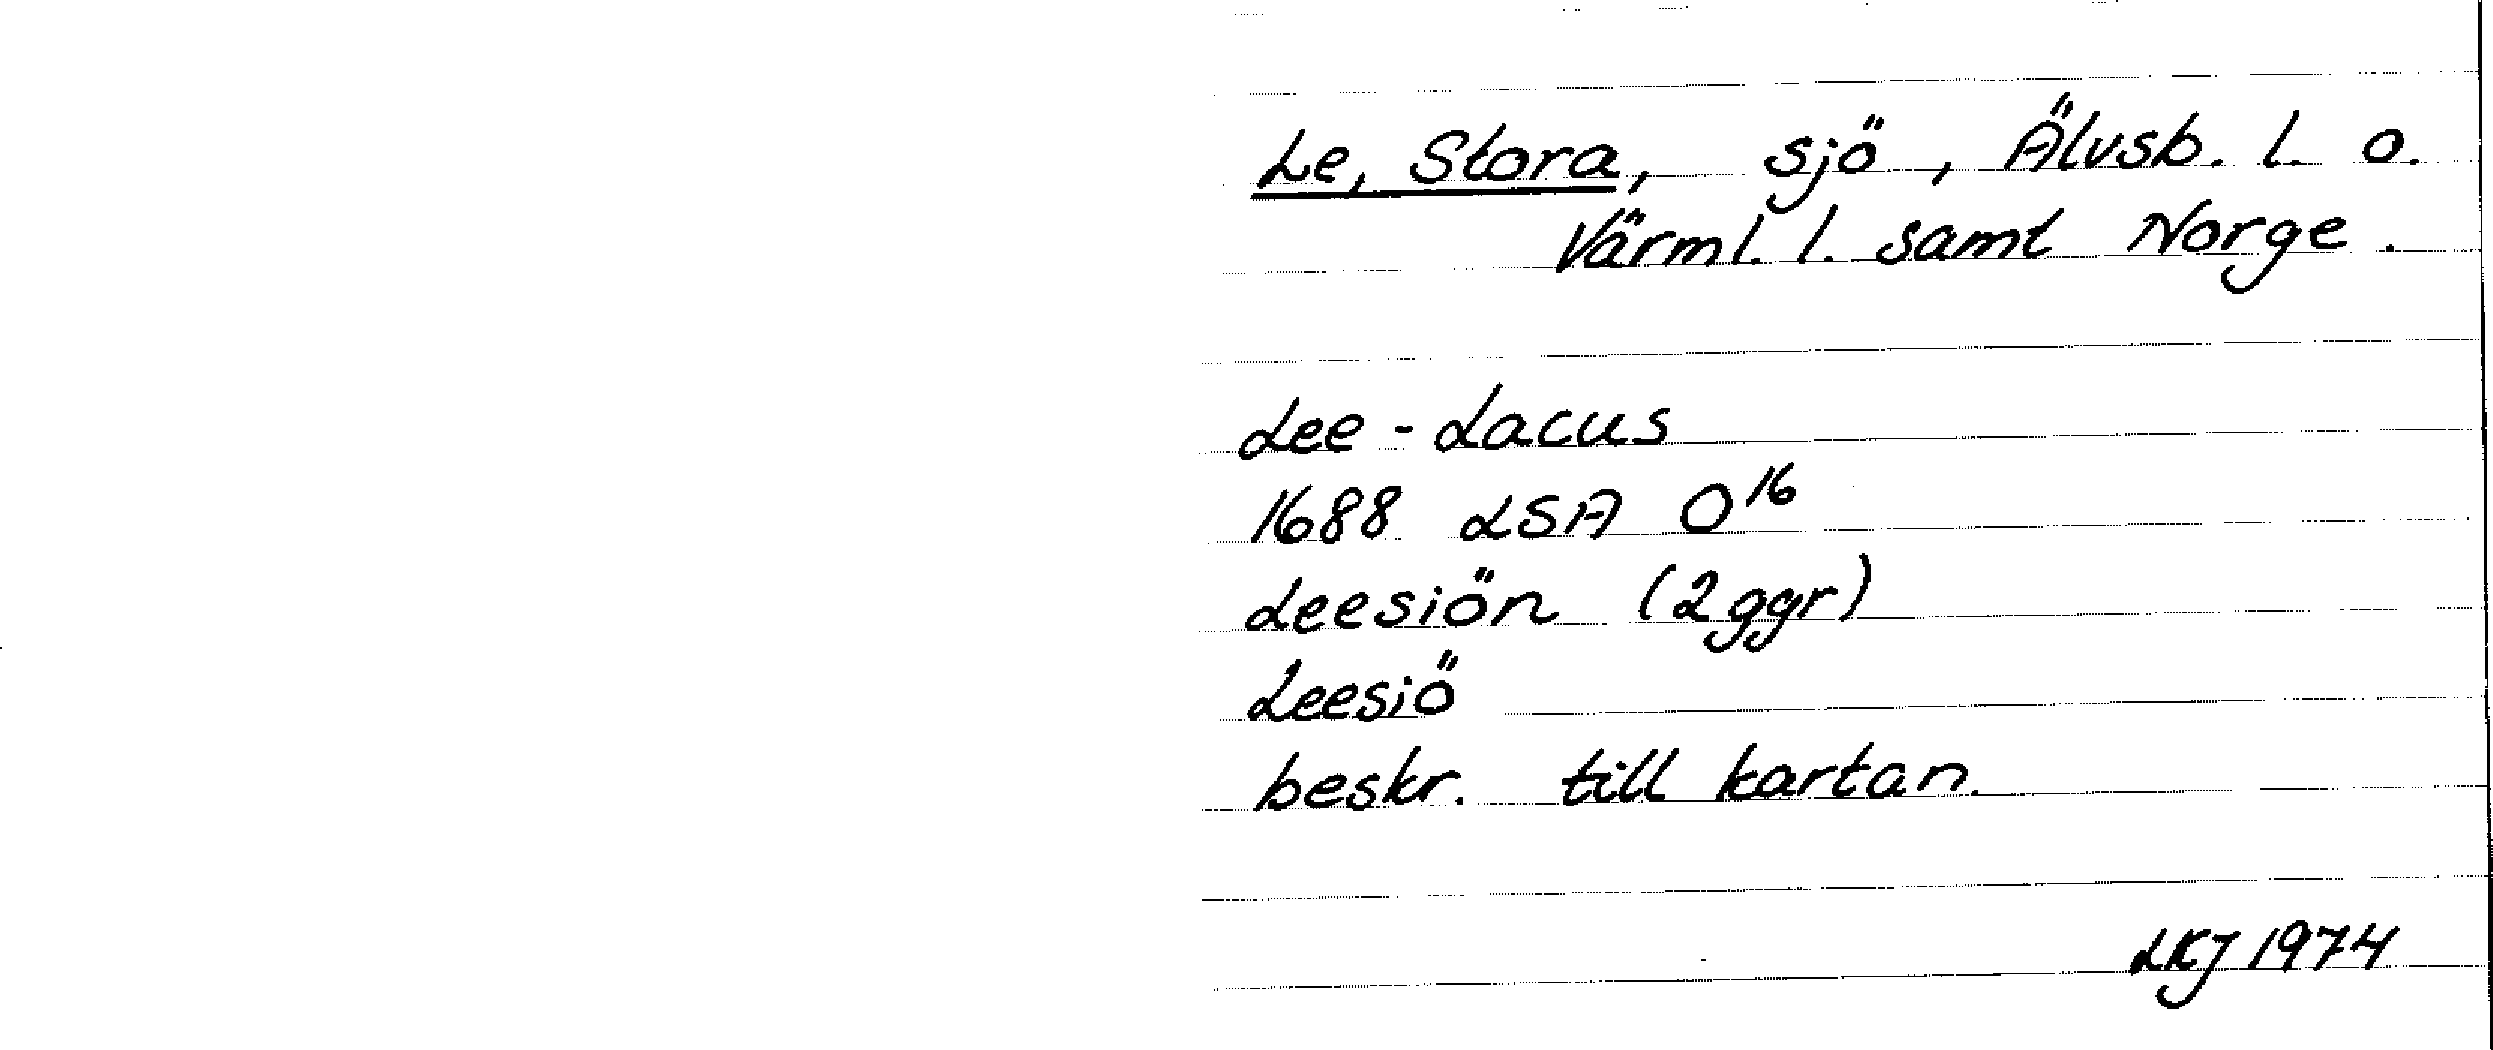 Le, Stora, sjö, Älvsb. l. o.
Värml. l. samt Norge.
Lee - Lacus
1688 LSA O¹⁶
Leesiön (2ggr)
Leesiö
beskr. till kartan.
LKJ 1974